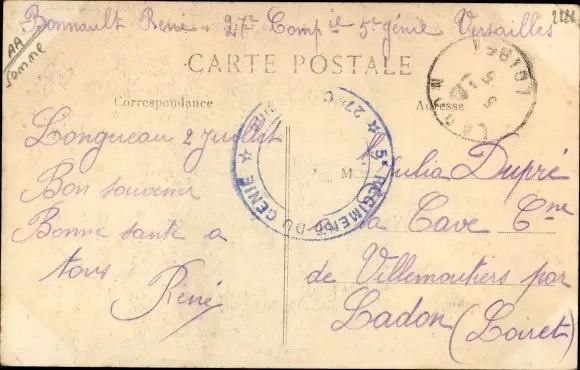 Bonnault René. 27e Compie 5e génie Versailles
AA
Somme
CARTE POSTALE
Correspondance
Adresse
Longueau 2 juillet
Bon souvenir
Bonne santé a
tous
René
M
Julia Dupré
a la Cave Cne
de Villemoutiers par
Ladon (Loiret)
5e REGIMENT DU GENIE
LADON
LOIRET